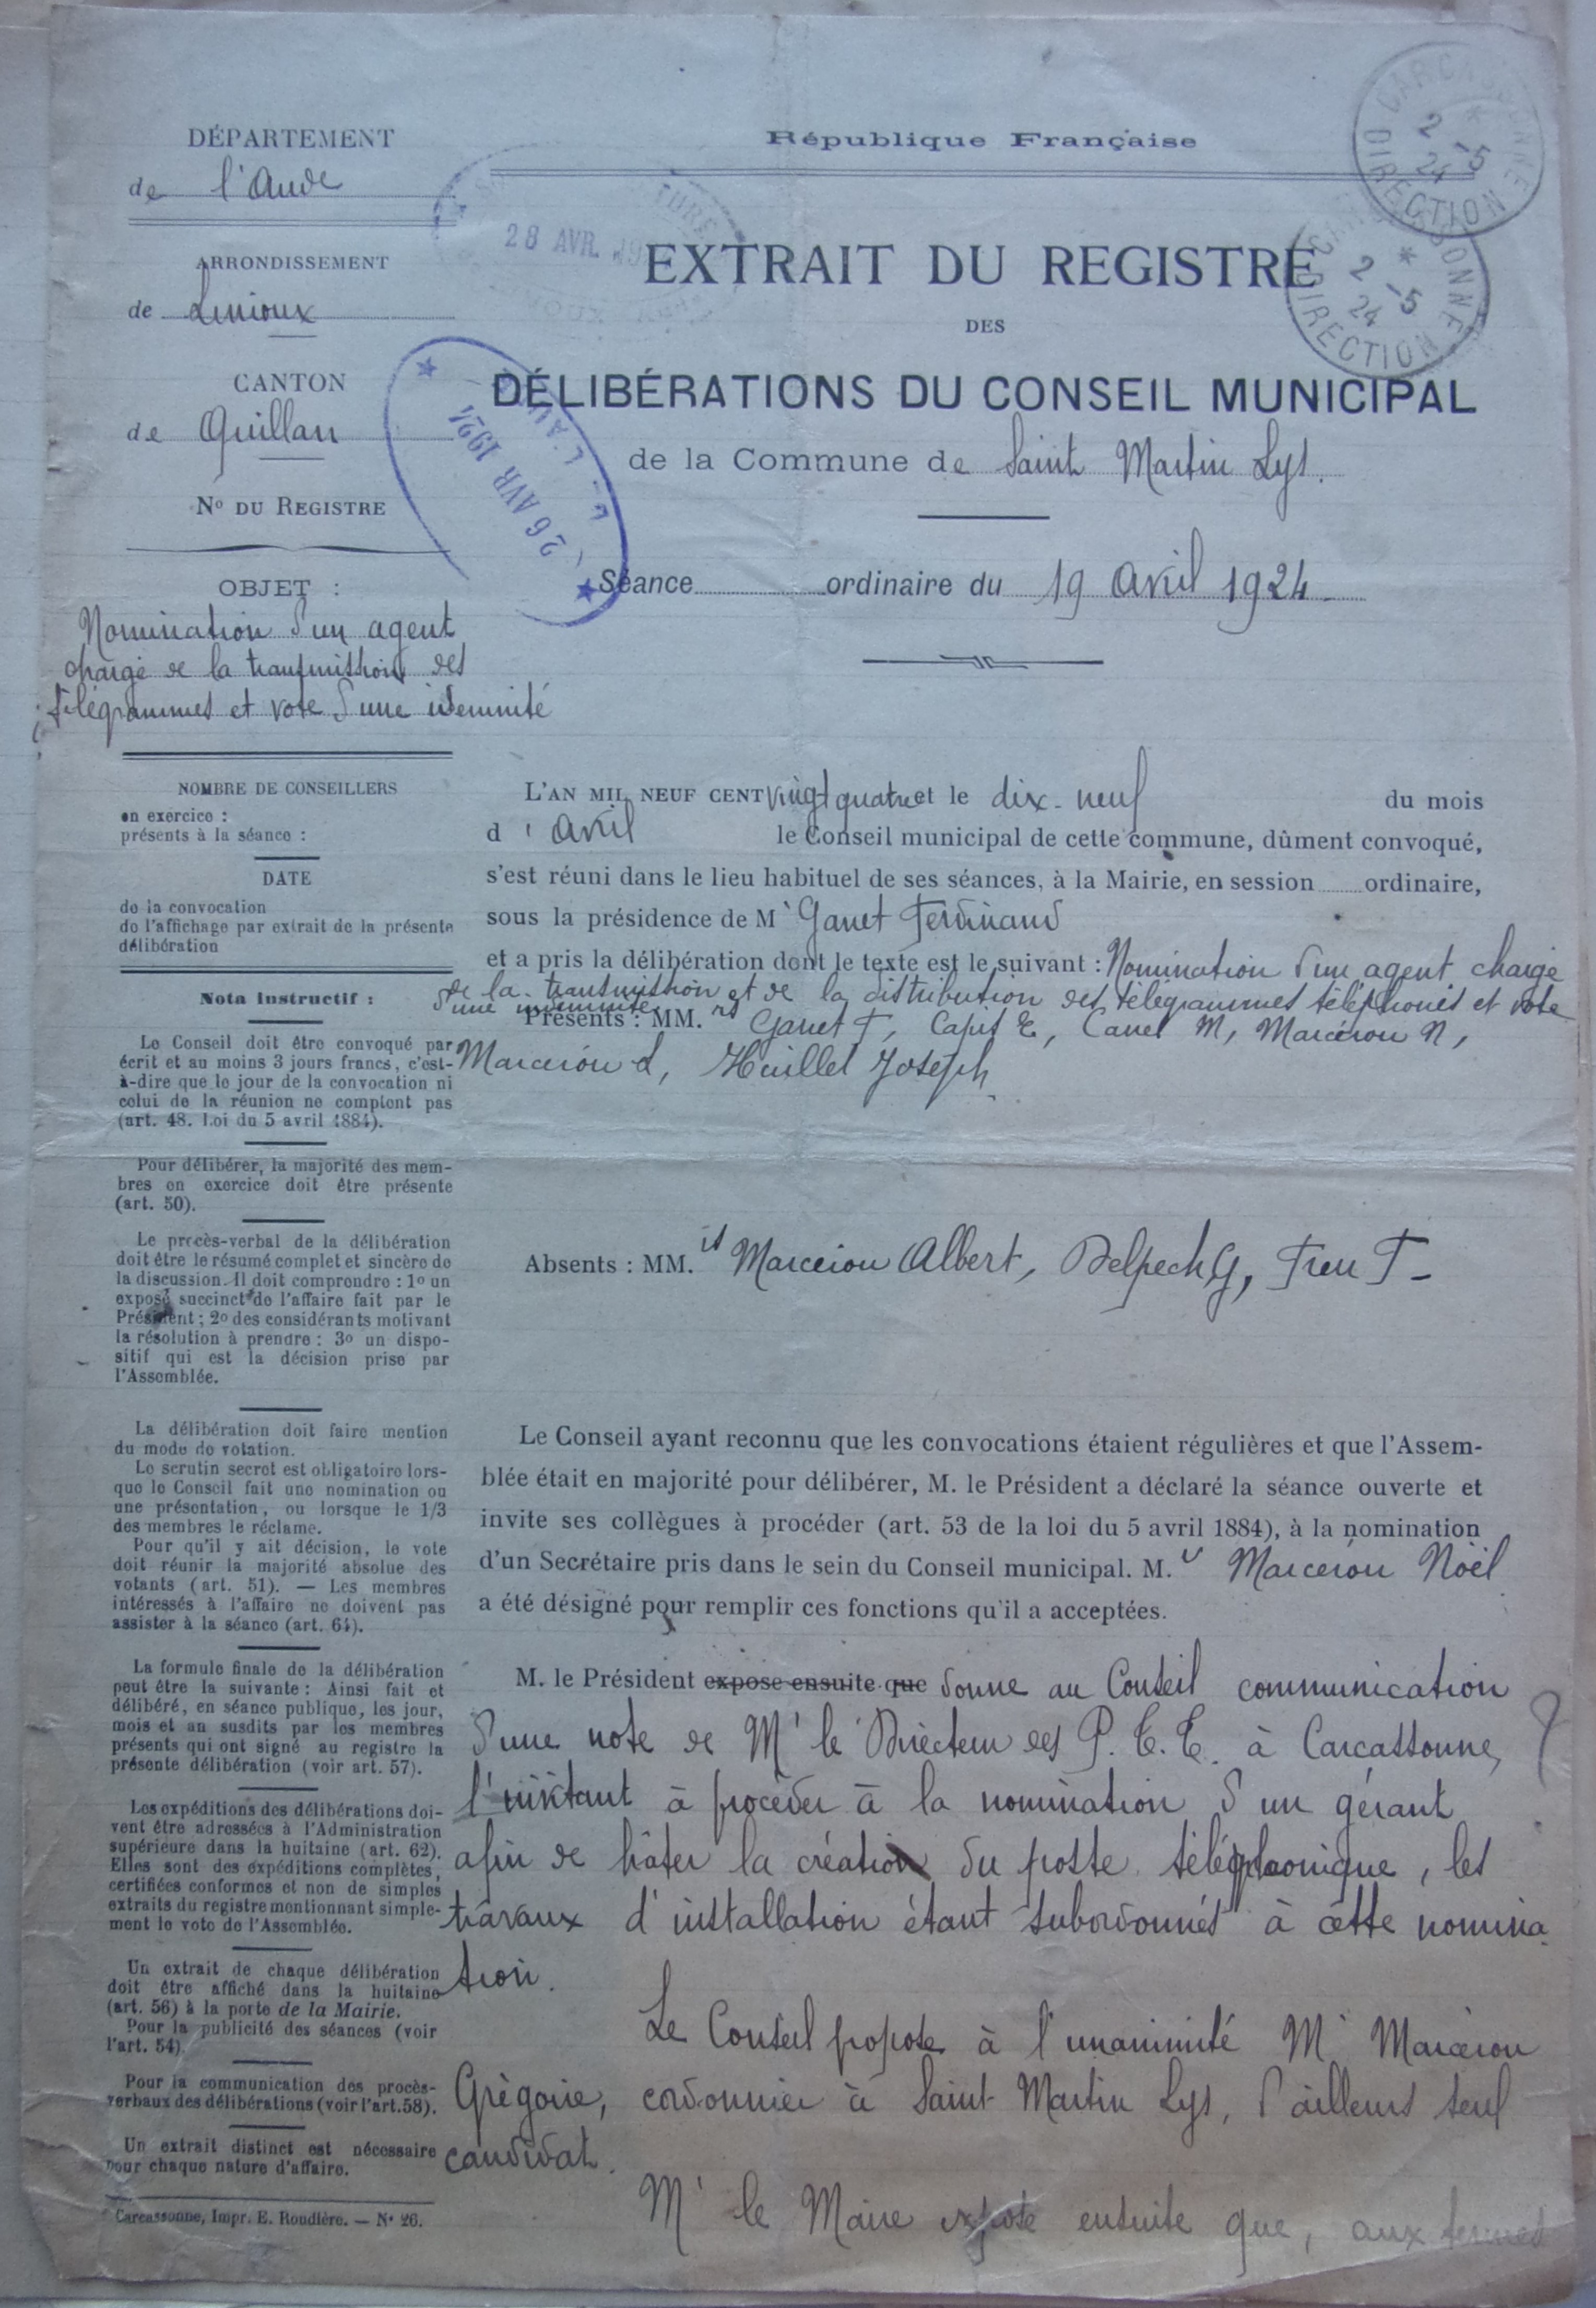 DÉPARTEMENT
de l'Aude
ARRONDISSEMENT
de Limoux
CANTON
de Quillan
No DU REGISTRE
OBJET :
Nomination d'un agent
chargé de la transmission des
télégrammes et vote d'une idemnité
NOMBRE DE CONSEILLERS
en exercice :
présents à la séance :
DATE
de la convocation
de l'affichage par extrait de la présente
délibération
Nota instructif :
Le Conseil doit être convoqué par
écrit et au moins 3 jours francs, c'est-
à-dire que le jour de la convocation ni
celui de la réunion ne comptent pas
(art. 48. Loi du 5 avril 1884).
Pour délibérer, la majorité des mem-
bres en exercice doit être présente
(art. 50).
Le procès-verbal de la délibération
doit être le résumé complet et sincère de
la discussion. Il doit comprendre : 1o un
exposé succinct de l'affaire fait par le
Président ; 2o des considérants motivant
la résolution à prendre : 3o un dispo-
sitif qui est la décision prise par
l'Assemblée.
La délibération doit faire mention
du mode de votation.
Le scrutin secret est obligatoire lors-
que le Conseil fait une nomination ou
une présentation, ou lorsque le 1/3
des membres le réclame.
Pour qu'il y ait décision, le vote
doit réunir la majorité absolue des
votants (art. 51). — Les membres
intéressés à l'affaire ne doivent pas
assister à la séance (art. 64).
La formule finale de la délibération
peut être la suivante : Ainsi fait et
délibéré, en séance publique, les jour,
mois et an susdits par les membres
présents qui ont signé au registre la
présente délibération (voir art. 57).
Les expéditions des délibérations doi-
vent être adressées à l'Administration
supérieure dans la huitaine (art. 62).
Elles sont des expéditions complètes,
certifiées conformes et non de simples
extraits du registre mentionnant simple-
ment le vote de l'Assemblée.
Un extrait de chaque délibération
doit être affiché dans la huitaine
(art. 56) à la porte de la Mairie.
Pour la publicité des séances (voir
l'art. 54).
Pour la communication des procès-
verbaux des délibérations (voir l'art.58).
Un extrait distinct est nécessaire
pour chaque nature d'affaire.
Carcassonne, Impr. E. Roudière. — No 26.
République Française
CARCASSONNE
2 -5
24
DIRECTION
CARCASSONNE
2 -5
24
DIRECTION
28 AVR. 19
26 AVR 1924
EXTRAIT DU REGISTRE
DES
DÉLIBÉRATIONS DU CONSEIL MUNICIPAL
de la Commune de Saint Martin Lys.
Séance ordinaire du 19 Avril 1924
L'AN MIL NEUF CENT vingt quatre et le dix-neuf du mois
d'Avril le Conseil municipal de cette commune, dûment convoqué,
s'est réuni dans le lieu habituel de ses séances, à la Mairie, en session ordinaire,
sous la présidence de Mr Ganet Ferdinand
et a pris la délibération dont le texte est le suivant : Nomination d'un agent chargé
de la transmission et de la distribution des télégrammes téléphonés et vote
d'une indemnité
Présents : MM.rs Ganet F, Capit E, Canet M, Marcerou N,
Marcerou L, Huillet Joseph
Absents : MM. Marcerou Albert, Delpech G, Freu F -
Le Conseil ayant reconnu que les convocations étaient régulières et que l'Assem-
blée était en majorité pour délibérer, M. le Président a déclaré la séance ouverte et
invite ses collègues à procéder (art. 53 de la loi du 5 avril 1884), à la nomination
d'un Secrétaire pris dans le sein du Conseil municipal. M.r Marcerou Noël
a été désigné pour remplir ces fonctions qu'il a acceptées.
M. le Président expose ensuite que donne au Conseil communication
d'une note de Mr le Directeur des P. T. T. à Carcassonne,
l'invitant à procéder à la nomination d'un gérant
afin de hâter la création du poste téléphonique, les
travaux d'installation étant subordonnés à cette nomina
tion.
Le Conseil propose à l'unanimité Mr Marcerou
Grégoire, cordonnier à Saint-Martin Lys, d'ailleurs seul
candidat.
Mr le Maire expose ensuite que, aux termes